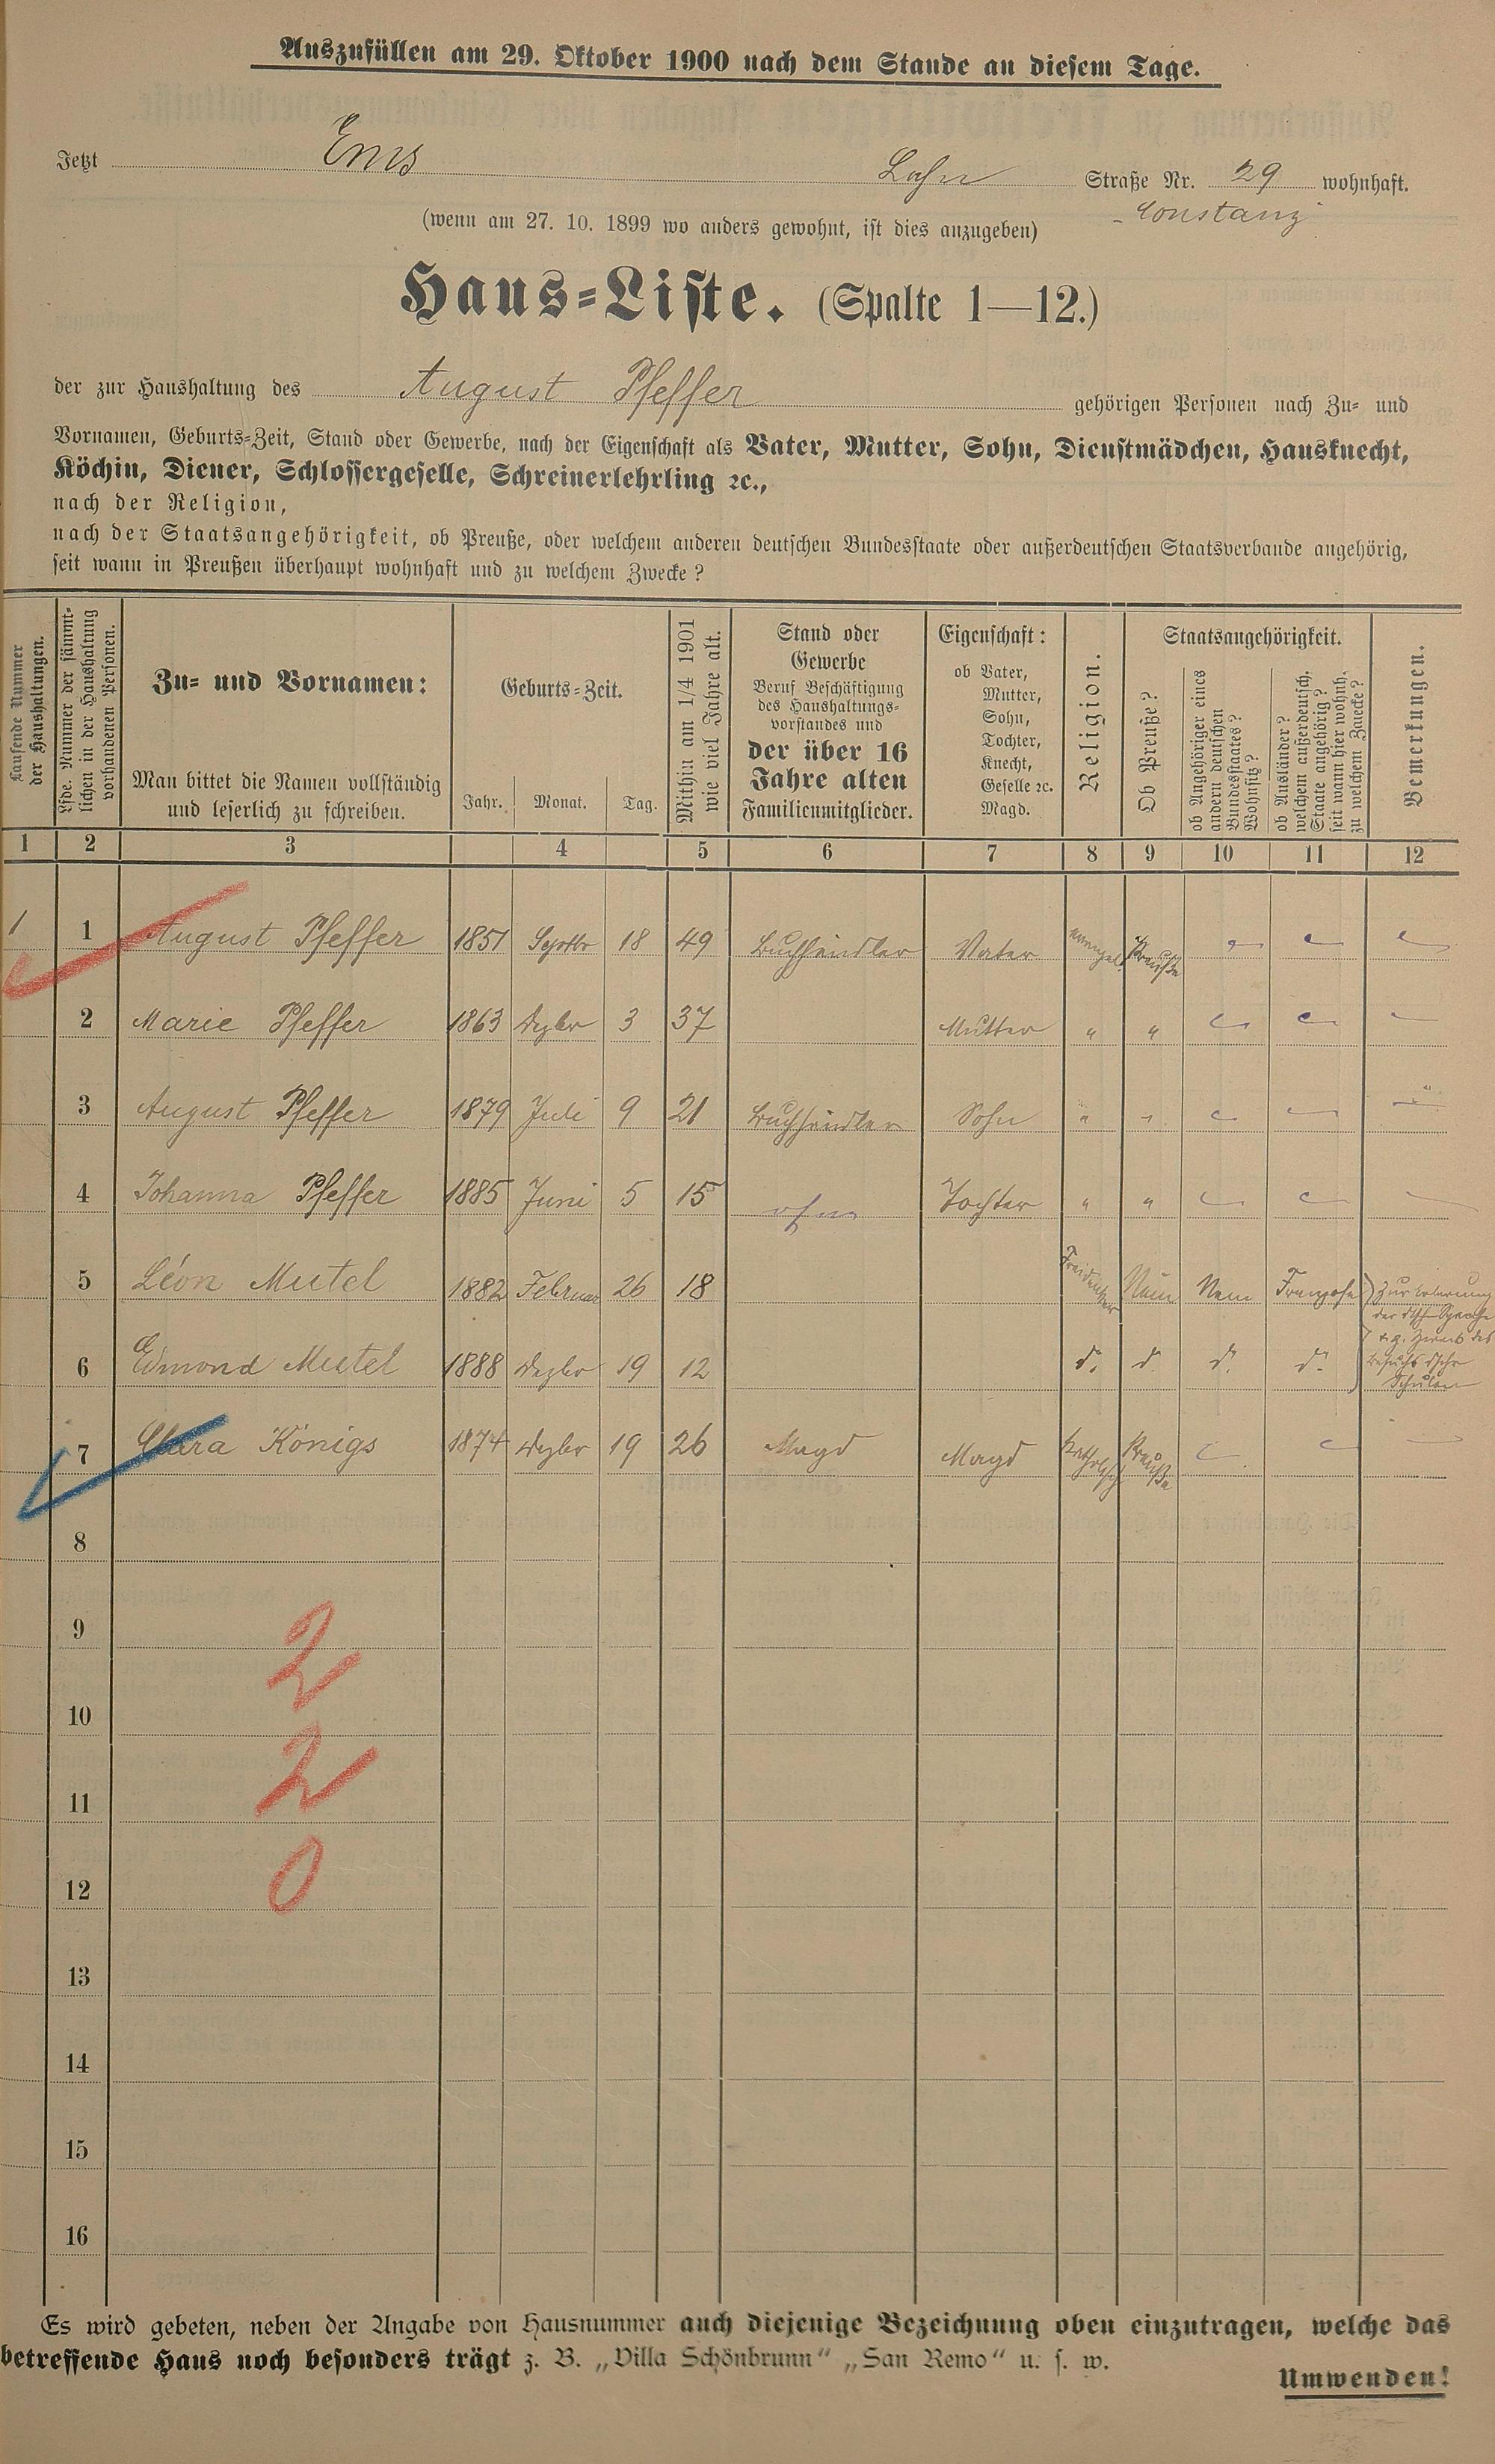 Auszufüllen am 29. Oktober 1900 nach dem Stande an diesem Tage.
Jetzt Ems Lahn Straße Nr. 29 wohnhaft.
(wenn am 27. 10. 1899 wo anders gewohnt, ist dies anzugeben) Constanz
Haus-Liste. (Spalte 1—12.)
der zur Haushaltung des August Pfeffer gehörigen Personen nach Zu- und
Vornamen, Geburts-Zeit, Stand oder Gewerbe, nach der Eigenschaft als Vater, Mutter, Sohn, Dienstmädchen, Hausknecht,
Köchin, Diener, Schlossergeselle, Schreinerlehrling ꝛc.,
nach der Religion,
nach der Staatsangehörigkeit, ob Preuße, oder welchem anderen deutschen Bundesstaate oder außerdeutschen Staatsverbande angehörig,
seit wann in Preußen überhaupt wohnhaft und zu welchem Zwecke?
Laufende Nummer
der Haushaltungen.
Lfde. Nummer der sämmt-
lichen in der Haushaltung
vorhandenen Personen.
Zu- und Vornamen:
Man bittet die Namen vollständig
und leserlich zu schreiben.
Geburts-Zeit.
Jahr. Monat. Tag.
Mithin am 1/4 1901
wie viel Jahre alt.
Stand oder
Gewerbe
Beruf Beschäftigung
des Haushaltungs-
vorstandes und
der über 16
Jahre alten
Familienmitglieder.
Eigenschaft:
ob Vater,
Mutter,
Sohn,
Tochter,
Knecht,
Geselle ꝛc.
Magd.
Religion.
Staatsangehörigkeit.
Ob Preuße?
ob Angehöriger eines
andern deutschen
Bundesstaates?
Wohnsitz?
ob Ausländer?
welchem außerdeutsch.
Staate angehörig?
seit wann hier wohnh.
zu welchem Zwecke?
Bemerkungen.
1 2 3 4 5 6 7 8 9 10 11 12
1 1 August Pfeffer 1851 Septbr 18 49 Buchhändler Vater evangel. Preuße
2 Marie Pfeffer 1863 Dezbr 3 37 Mutter " "
3 August Pfeffer 1879 Juli 9 21 Buchhändler Sohn " "
4 Johanna Pfeffer 1885 Juni 5 15 ohne Tochter " "
5 Léon Mutel 1882 Februar 26 18 Freidenker Nein Nein Franzose Zur Erlernung
der dtsch Sprache
u. z. Zweck des
Besuchs dtschr
Schulen
6 Edmond Mutel 1888 Dezbr 19 12 do. do. do. do.
7 Clara Königs 1874 Dezbr 19 26 Magd Magd katholisch Preuße
8
9
2
10
2
11
0
12
13
14
15
16
Es wird gebeten, neben der Angabe von Hausnummer auch diejenige Bezeichnung oben einzutragen, welche das
betreffende Haus noch besonders trägt z. B. „Villa Schönbrunn“ „San Remo“ u. s. w.
Umwenden!